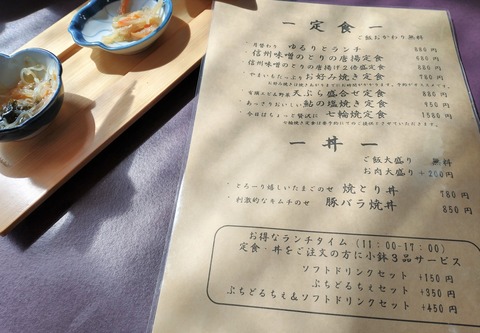 ー 定 食 ー
ご飯おかわり無料
月替わり ゆるりとランチ 880 円
信州味噌のとりの唐揚定食 660 円
信州味噌のとりの唐揚げ2倍盛定食 880 円
やまいもたっぷり お好み焼き定食 780 円
天ぷら盛合せ定食 880 円
あっさりおいしい 鮎の塩焼き定食 950 円
今日はちょっと贅沢に 七輪焼定食 1580 円
ー 丼 ー
ご飯大盛り 無料
お肉大盛り +200円
とろーり嬉しいたまごのせ 焼とり丼 780 円
刺激的なキムチのせ 豚バラ焼丼 850 円
お得なランチタイム (11:00-17:00)
定食・丼をご注文の方に小鉢3品サービス
ソフトドリンクセット +150 円
ぷちどるちぇセット +350 円
ぷちどるちぇ&ソフトドリンクセット +450 円